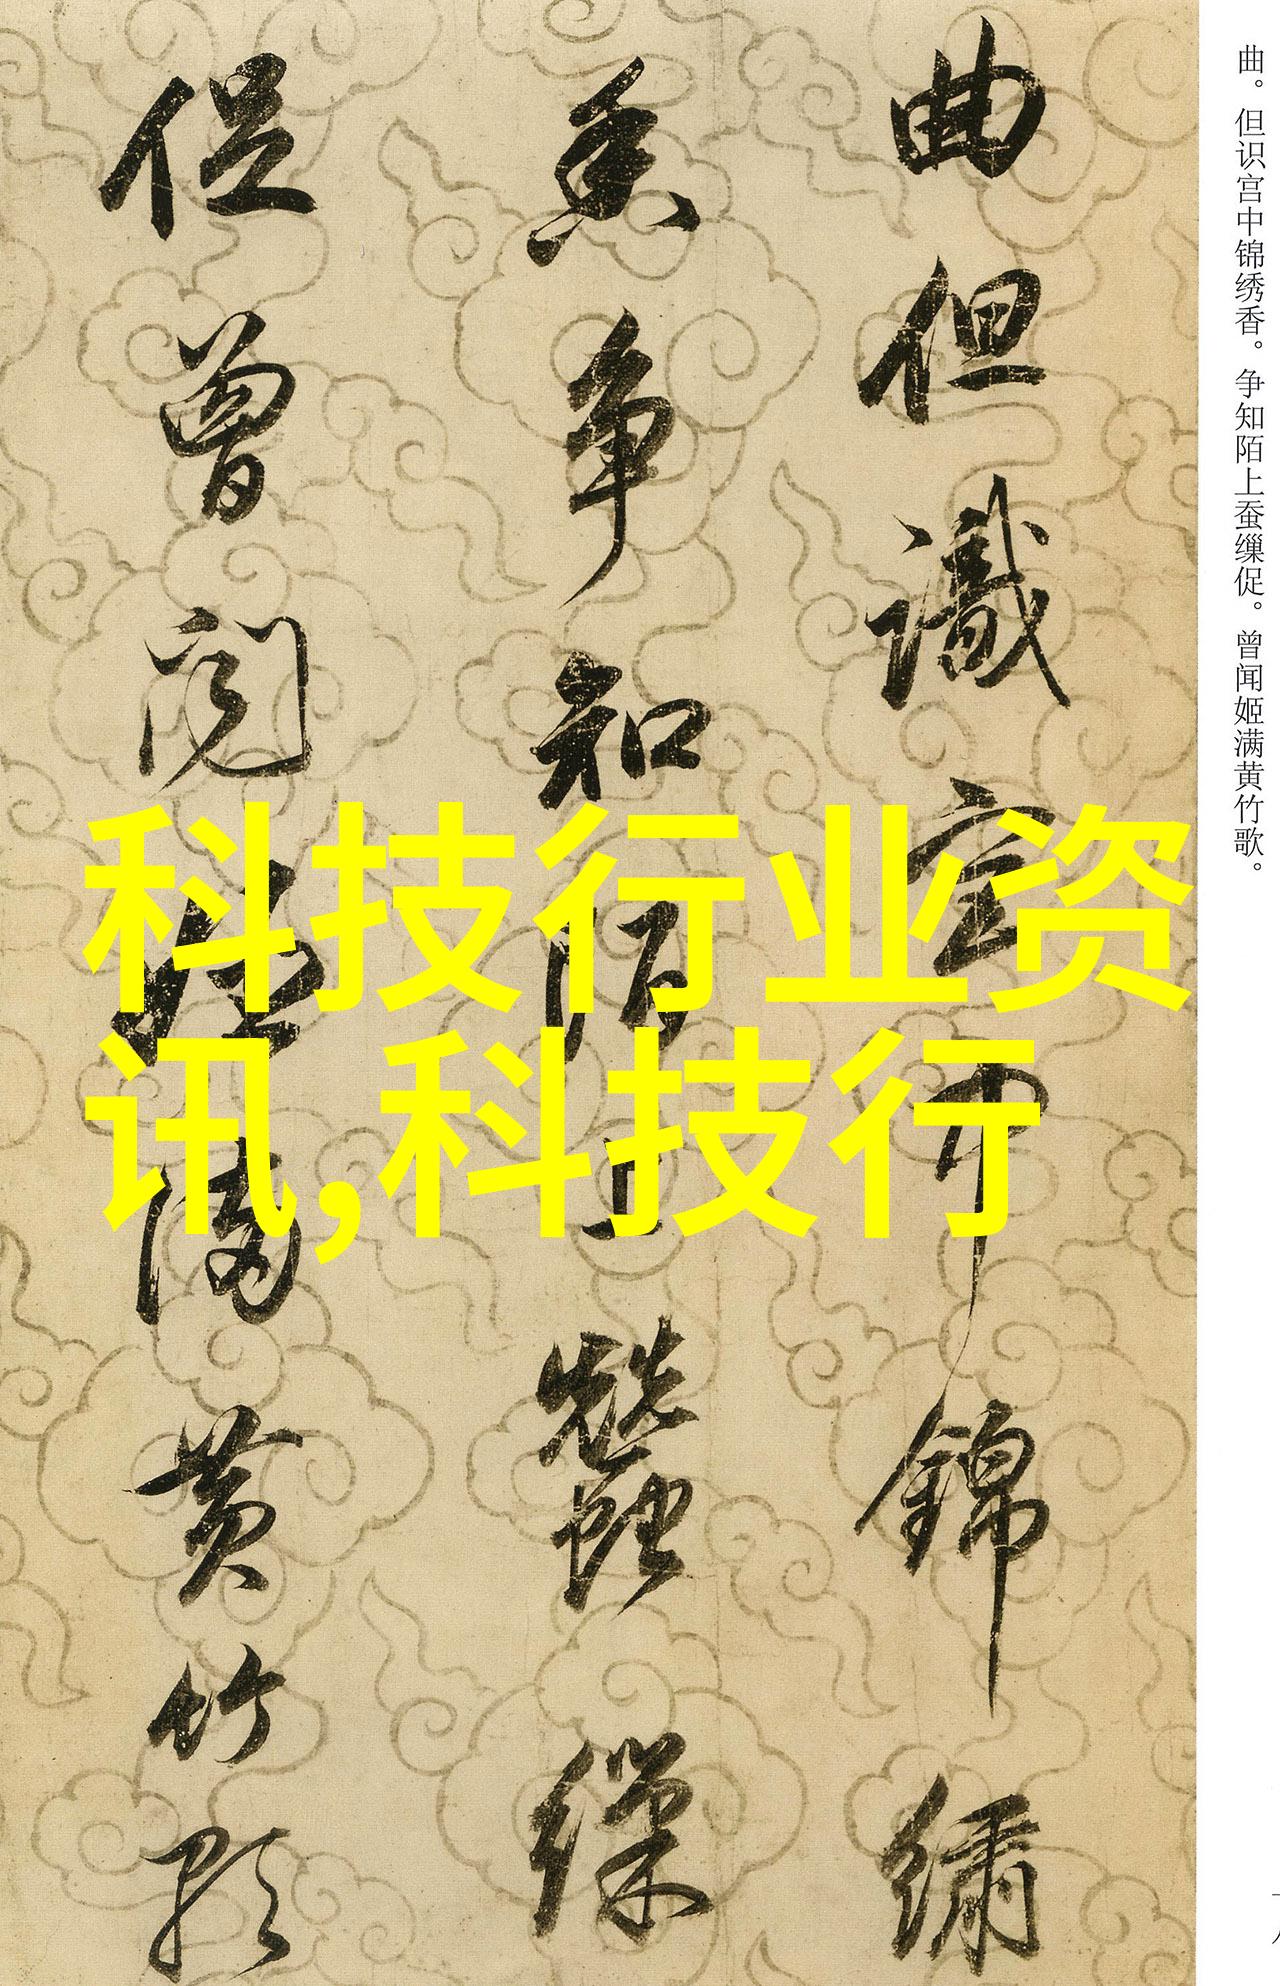 曲。但识宫中锦绣香。争知陌上蚕缫促。曾闻姬满黄竹歌。
曲但識宫中錦繡
香争知陌上蠶繅
促曾闻姬满黄竹歌
科技行业资
讯,科技行